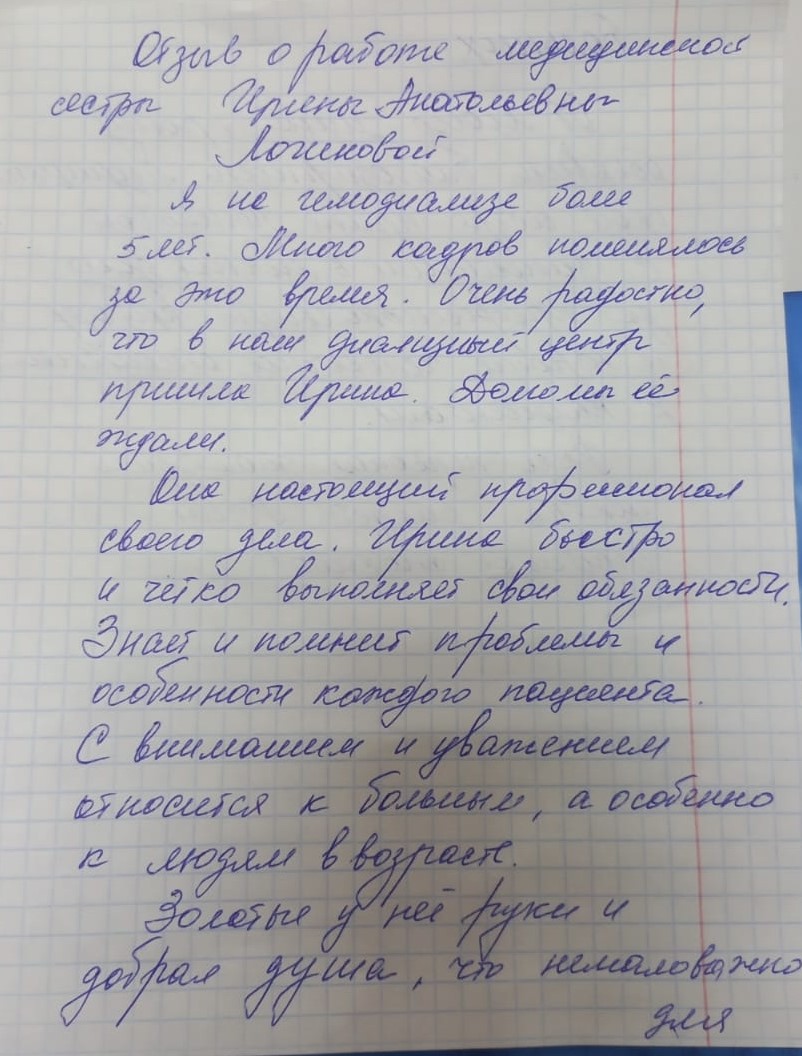 Отзыв о работе медицинской
сестры Ирины Анатольевны
Логиновой
Я на гемодиализе более
5 лет. Много кадров поменялось
за это время. Очень радостно,
что в наш диализный центр
пришла Ирина. Долго мы её
ждали.
Она настоящий профессионал
своего дела. Ирина быстро
и чётко выполняет свои обязанности.
Знает и помнит проблемы и
особенности каждого пациента.
С вниманием и уважением
относится к больным, а особенно
к людям в возрасте.
Золотые у неё руки и
добрая душа, что немаловажно
для